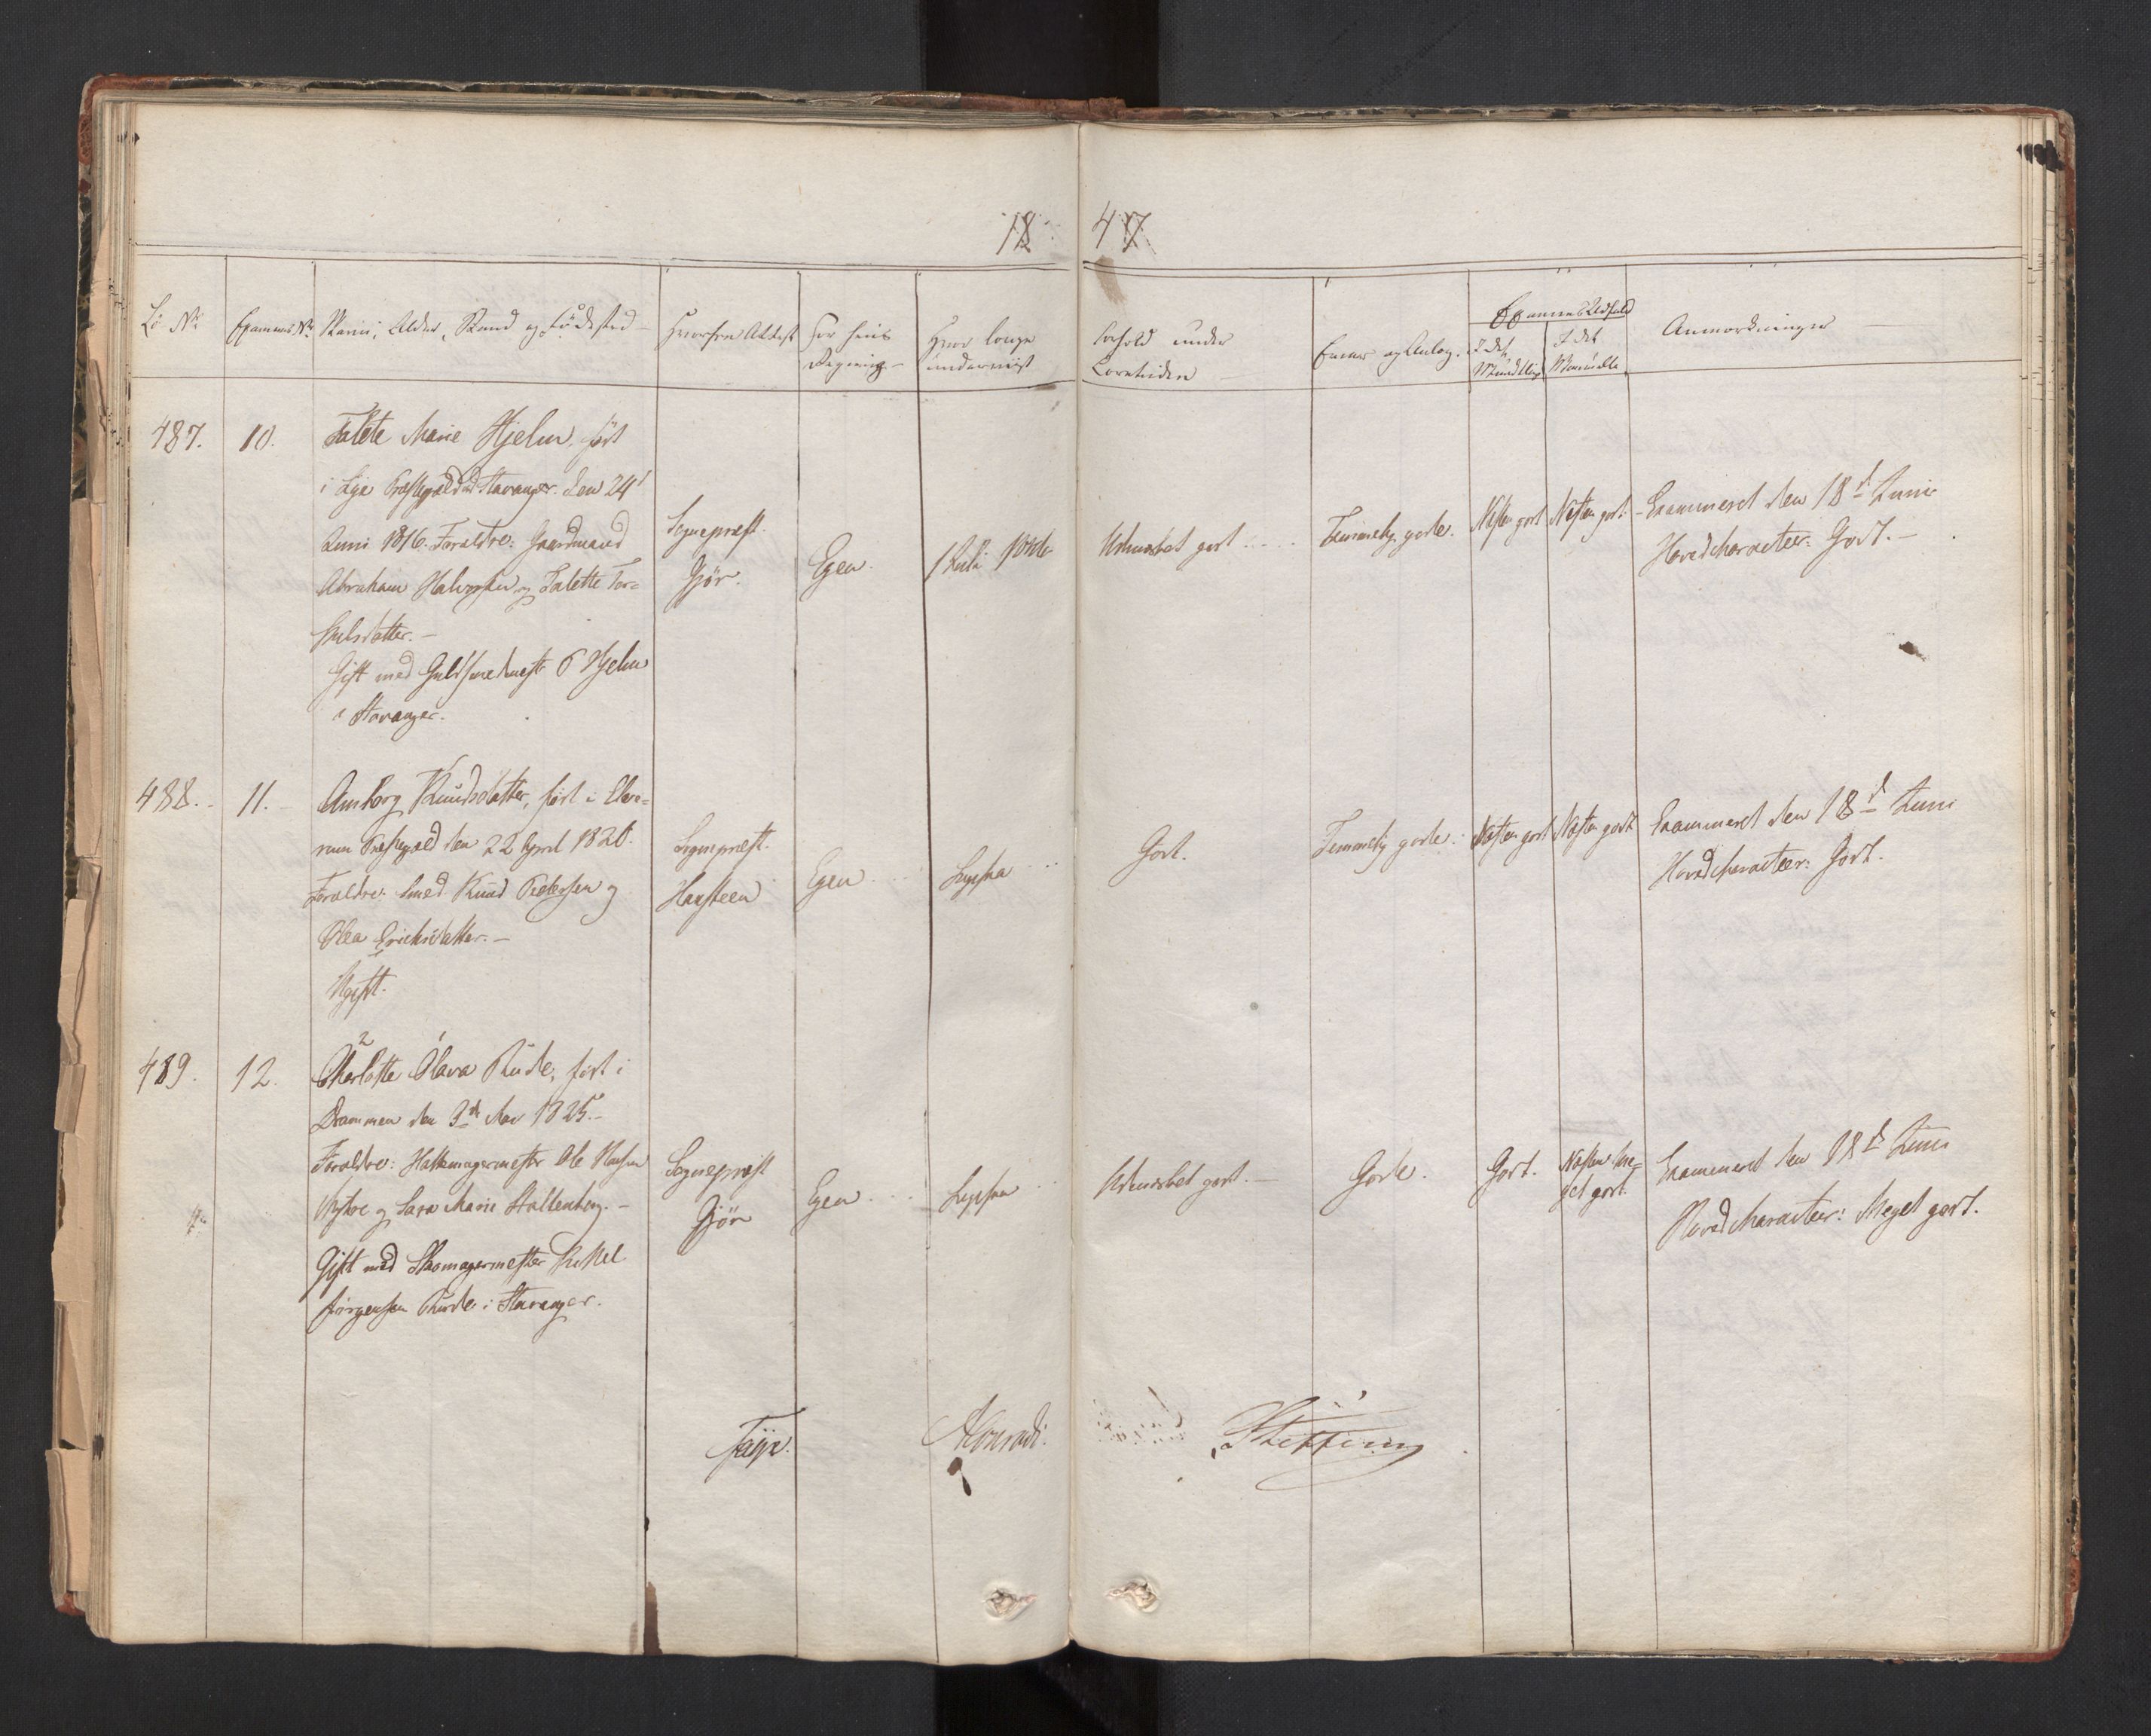 18 47
Lø No
Examens No
Navn, Alder, Stand og Fødested
Hvorfra Attest
For hvis
Regning
Hvor længe
underviist
Forhold under
Læretiden
Evner og Anlæg.
Examens Udfald
I det
Mundtlige
I det
Manuelle
Anmærkninger
487.
10.
Talete Marie Hjelm, født
i Lye Præstegjæld ved Stavanger. Den 24
Juni 1816. Forældre: Gaardmand
Abraham Halvorsen og Talette Tor=
kelsdatter. —
Gift med Guldsmedmest. O Hjelm
i Stavanger.
Sognepræst.
Gjør.
Egen.
Udmærket godt
Temmelig gode.
Næsten godt
Næsten godt
Examineret den 18d Juni
Hovedcharacteer: Godt. —
488.
11.
Amborg Knudsdatter, født i Elve=
rum Præstegjæld den 22 April 1820.
Forældre: Smed Knud Pedersen og
Olea Erichsdatter. —
Ugift.
Sognepræst.
Hansteen
Egen
Ligesaa
Godt.
Temmelig gode.
Næsten godt
Næsten godt
Examineret den 18d Juni
Hovedcharacteer: Godt.
489.
12.
2 1
Charlotte Olava Rude, født i
Drammen den 3d Nov 1825. —
Forældre: Hattemagermester Ole Hansen
og Sara Marie Stoltenberg. —
Gift med Skomagermester Kittel
Jørgensen Rude i Stavanger.
Sognepræst
Gjør
Egen
Ligesaa
Udmærket godt. —
Gode.
Godt.
Næsten me=
get godt.
Examineret den 18d Juni
Hovedcharacteer: Meget godt.
Faye.
AConradi.